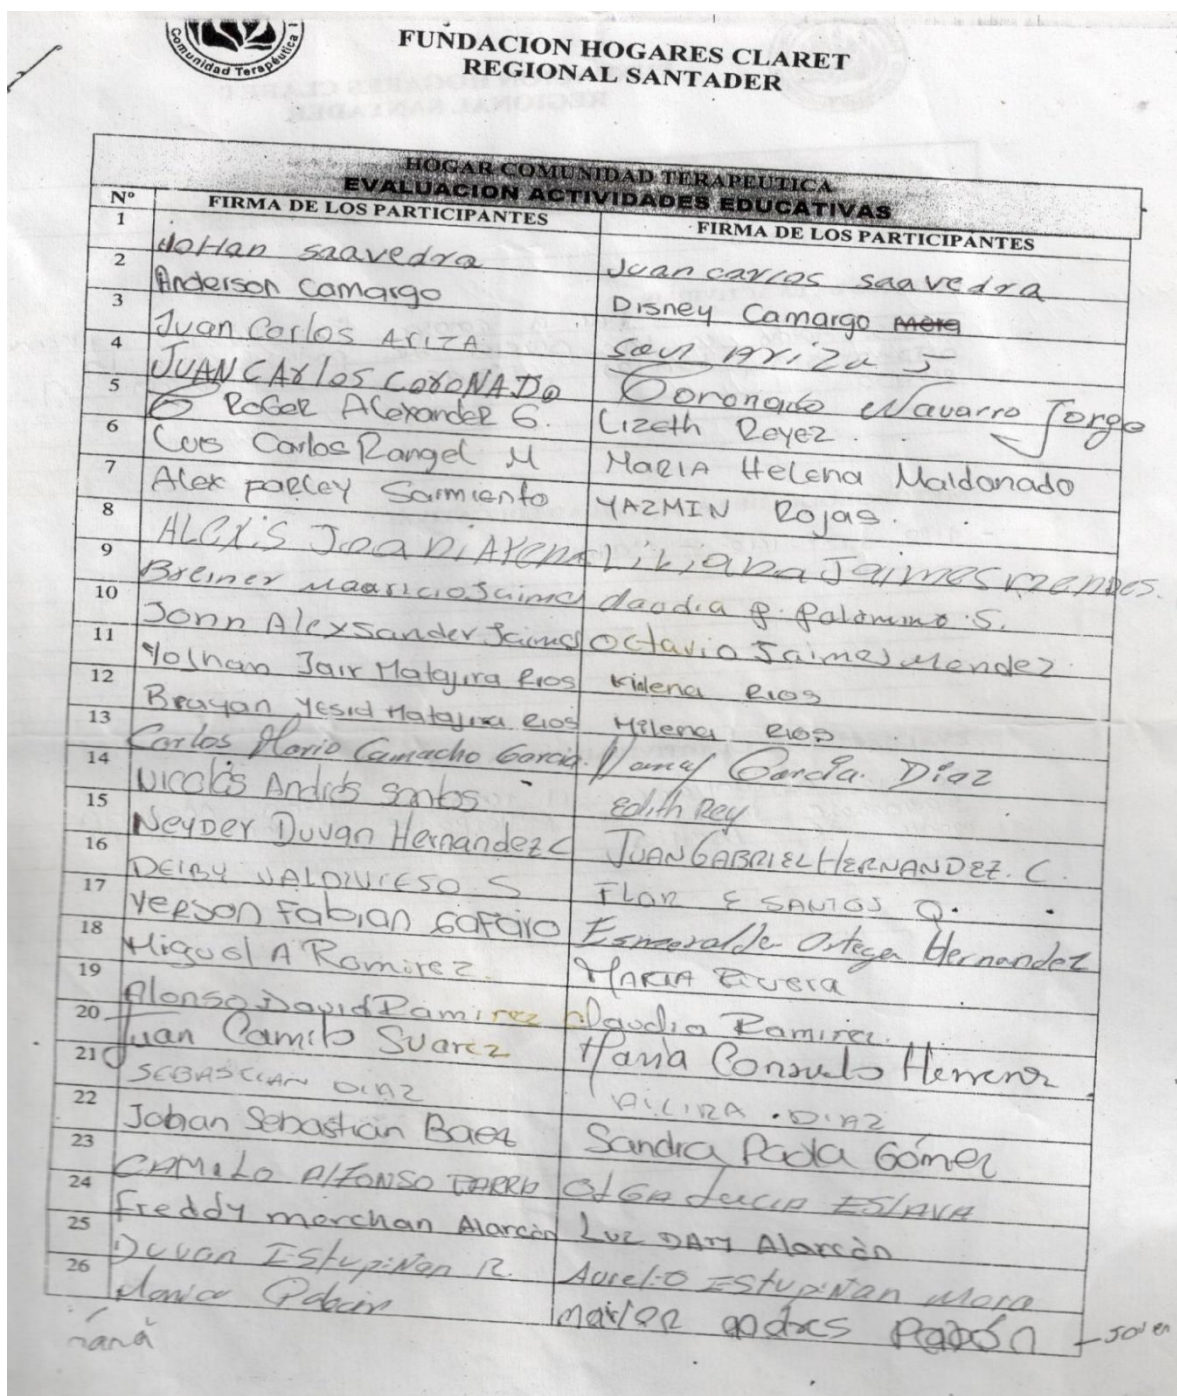 Comunidad Terapéutica
FUNDACION HOGARES CLARET
REGIONAL SANTADER
HOGAR COMUNIDAD TERAPEUTICA
EVALUACION ACTIVIDADES EDUCATIVAS
Nº FIRMA DE LOS PARTICIPANTES FIRMA DE LOS PARTICIPANTES
1 Johan saavedra Juan carlos saavedra
2 Anderson Camargo Disney Camargo
3 Juan Carlos ARIZA saul Ariza J
4 JUAN CArlos CoroNADo Coronado Navarro Jorge
5 RoGeR Alexander G. Lizeth Reyez.
6 Luis Carlos Rangel M MARIA Helena Maldonado
7 Alex parley Sarmiento YAZMIN Rojas.
8 ALEXIS Liliana Jaimes mendes.
9 Breiner Mauricio Jaimes claudia p. palomino S.
10 Jonn Alexsander Jaimes Octavio Jaimes Mendez.
11 Yolhan Jair Matajira Rios Milena Rios
12 Brayan Yesid Matajira Rios Milena Rios
13 Carlos Mario Camacho Garcia. Nancy García. Díaz
14 Nicolás Andrés Santos Edith Rey
15 Neyder Duvan Hernandez C JUAN GABRIEL HERNANDEZ. C.
16 DEIBY VALDIVIESO S FLOR E SANTOS Q.
17 Yerson Fabian Gafaro Esmeralda Ortega Hernandez
18 Miguel A Ramirez. MARIA Rivera
19 Alonso David Ramirez Claudia Ramirez.
20 Juan Camilo Suarez María Consuelo Herrera
21 SEBASTIAN DIAZ ALCIRA . DIAZ
22 Johan Sebastián Baez Sandra Paola Gómez
23 CAMILO AlFONSO PARRA OLGA Lucia ESLAVA
24 Freddy merchan Alarcón Luz DARY Alarcón
25 Duvan Estupiñan R. Aurelio Estupiñan Mora
26 Monica Pabón marlon andres Pabón - Joven
mamá